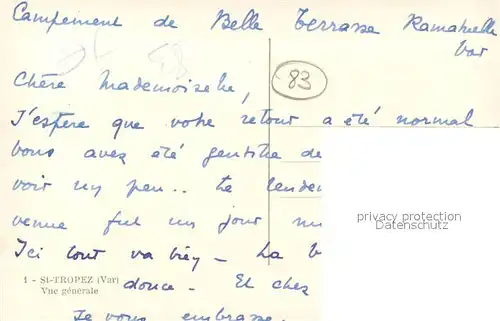 Campement de Belle Terrasse Ramatuelle
Var
83
Chère Mademoiselle,
J'espère que votre retour a été normal
vous avez été gentille de
voir un peu.. Le lende
venue fut un jour
Ici tout va bien - La b
1 - St-TROPEZ (Var)
Vue générale
douce. Et chez
Je vous embrasse.
privacy protection
Datenschutz